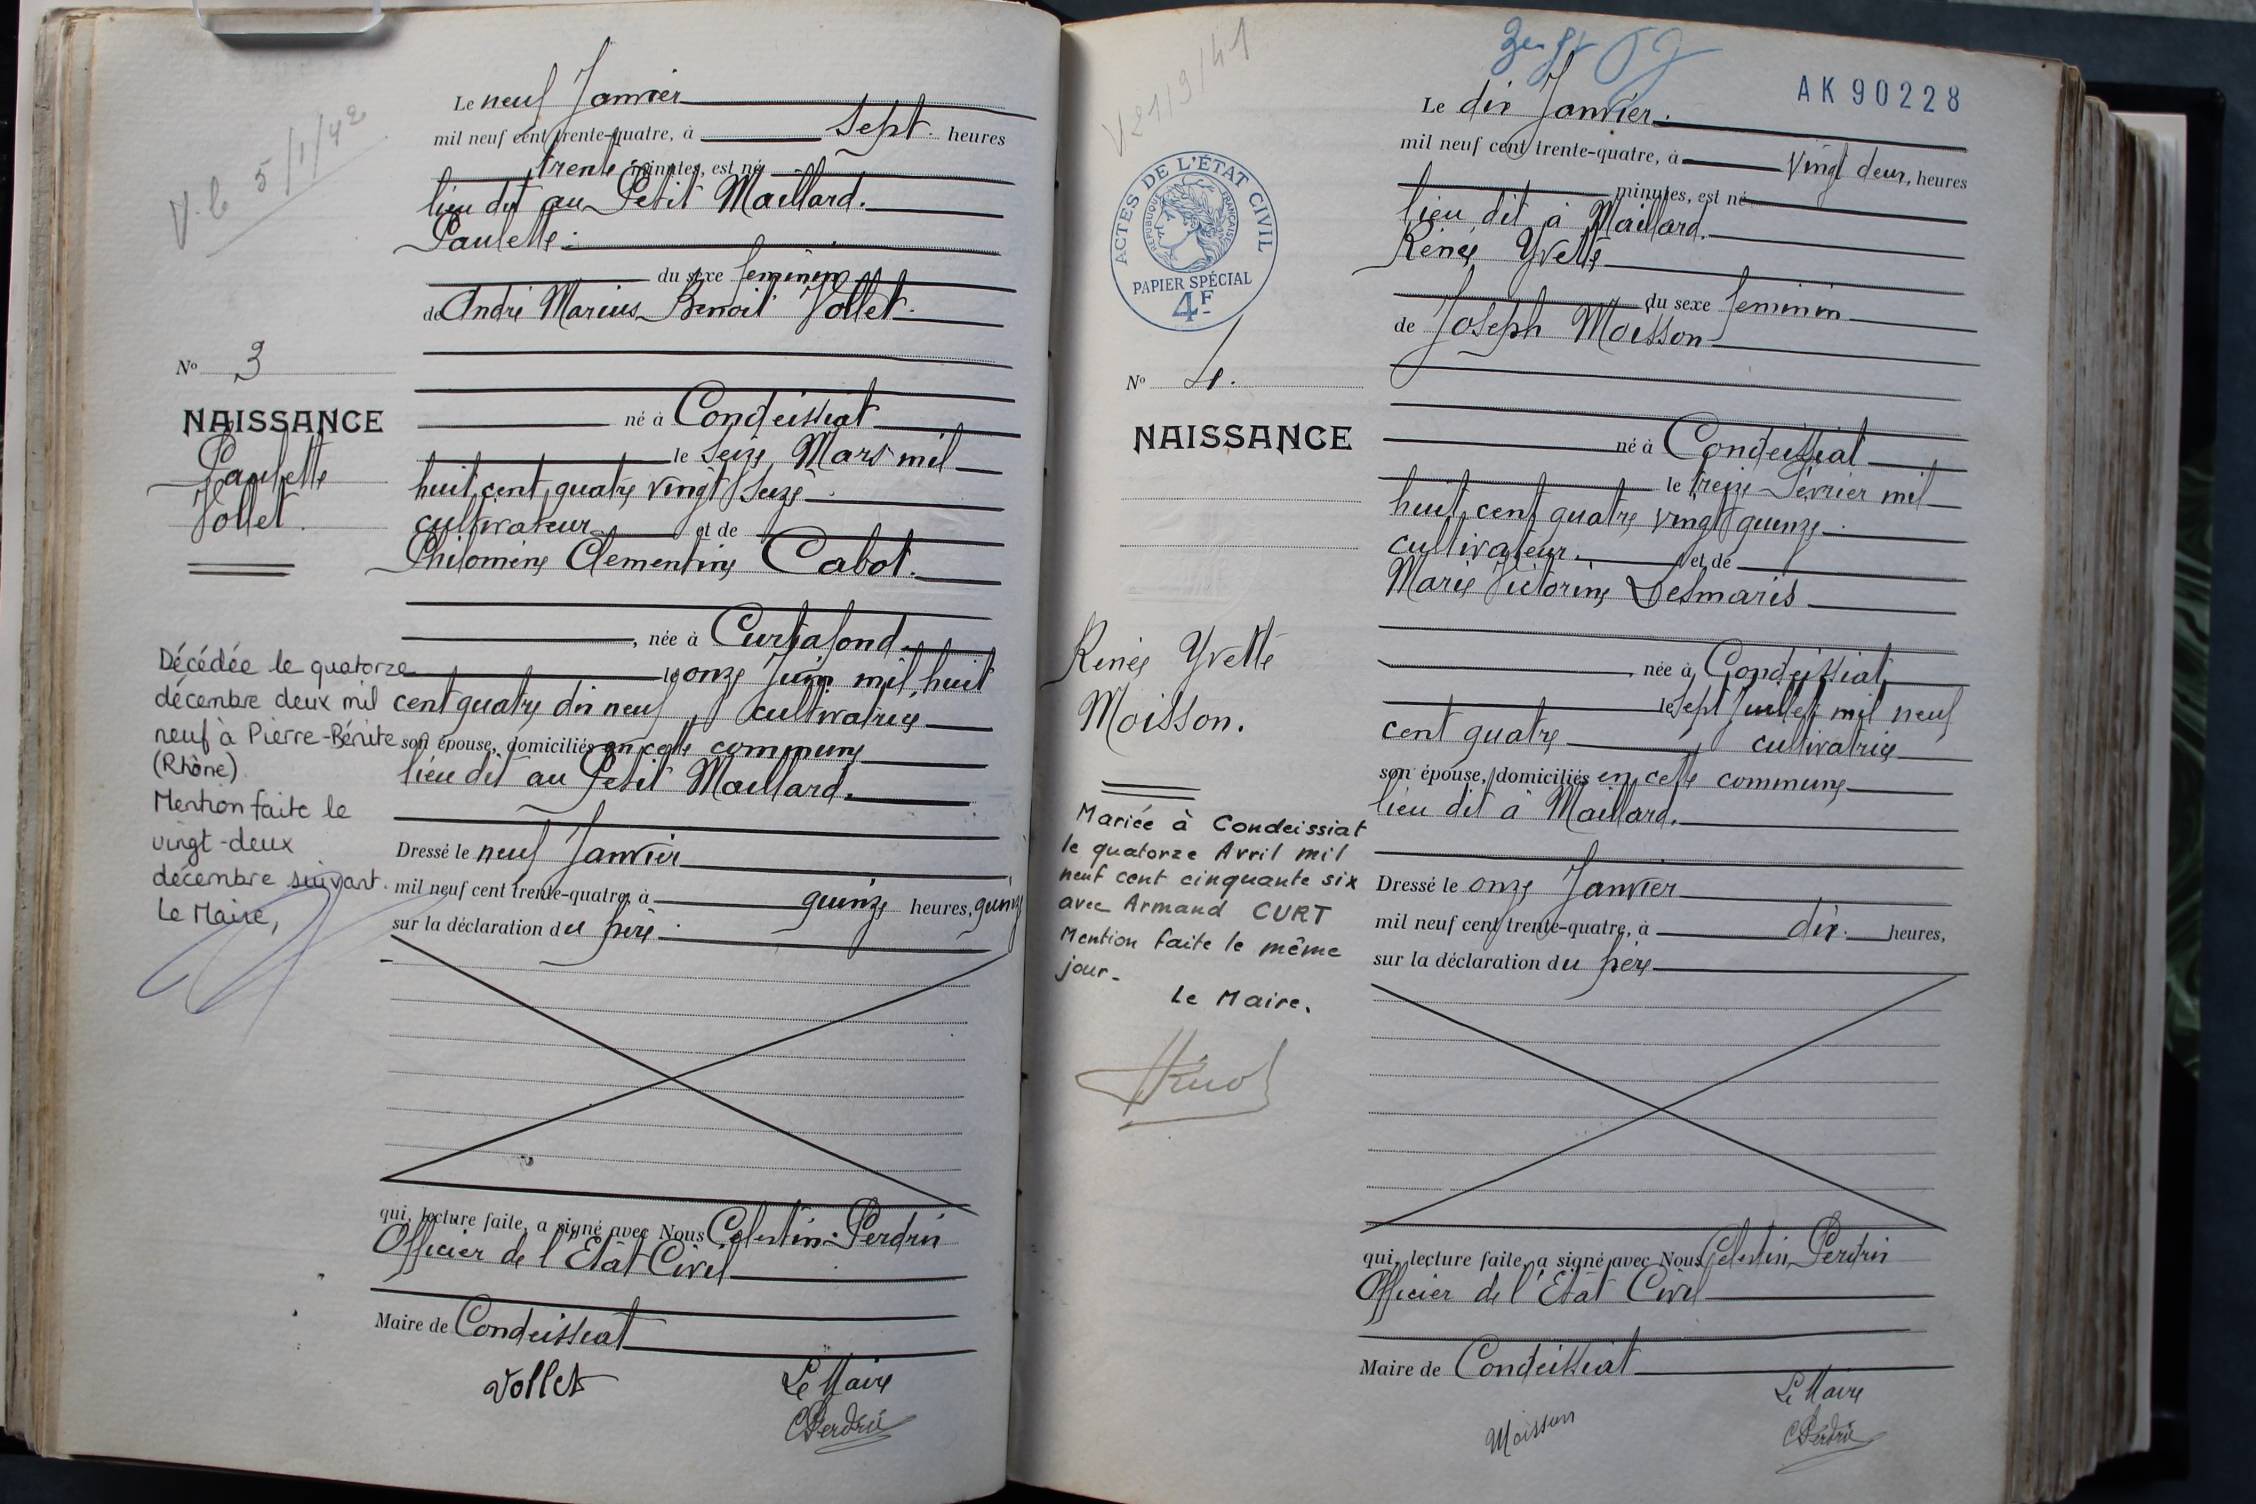 V. le 5/1/42
Le neuf Janvier
mil neuf cent trente-quatre, à sept heures
trente minutes, est né
lieu dit au Petit Maillard.
Paulette
du sexe feminin
de André Marius Benoit Vollet
né à Condeissiat
le seize Mars mil
huit cent quatre vingt seize
cultivateur et de
Philomène Clementine Cabot.
née à Curtafond
le onze Juin mil huit
cent quatre dix neuf cultivatrice
son épouse, domiciliés en cette commune
lieu dit au Petit Maillard.
Dressé le neuf Janvier
mil neuf cent trente-quatre, à quinze heures, quinze
sur la déclaration du père
qui, lecture faite, a signé avec Nous Celestin Perdrix
Officier de l'Etat Civil
Maire de Condeissiat
Vollet Le Maire
CPerdrix
No 3
NAISSANCE
Paulette
Vollet.
Décédée le quatorze
décembre deux mil
neuf à Pierre-Bénite
(Rhône)
Mention faite le
vingt-deux
décembre suivant.
Le Maire,
V 21/9/41
AK 90228
Le dix Janvier
mil neuf cent trente-quatre, à vingt deux, heures
minutes, est né
lieu dit à Maillard.
Renée Yvette
du sexe feminin
de Joseph Moisson
né à Condeissiat
le treize Février mil
huit cent quatre vingt quinze
cultivateur. et de
Marie Victorine Desmaris
née à Condeissiat
le sept Juillet mil neuf
cent quatre cultivatrice
son épouse, domiciliés en cette commune
lieu dit à Maillard.
Dressé le onze Janvier
mil neuf cent trente-quatre, à dix heures,
sur la déclaration du père
qui, lecture faite, a signé avec Nous Celestin Perdrix
Officier de l'Etat Civil
Maire de Condeissiat
Le Maire
Moisson CPerdrix
ACTES DE L'ÉTAT CIVIL
RÉPUBLIQUE FRANÇAISE
PAPIER SPÉCIAL
4F
No 4.
NAISSANCE
Renée Yvette
Moisson.
Mariée à Condeissiat
le quatorze Avril mil
neuf cent cinquante six
avec Armand CURT
Mention faite le même
jour-
Le Maire.